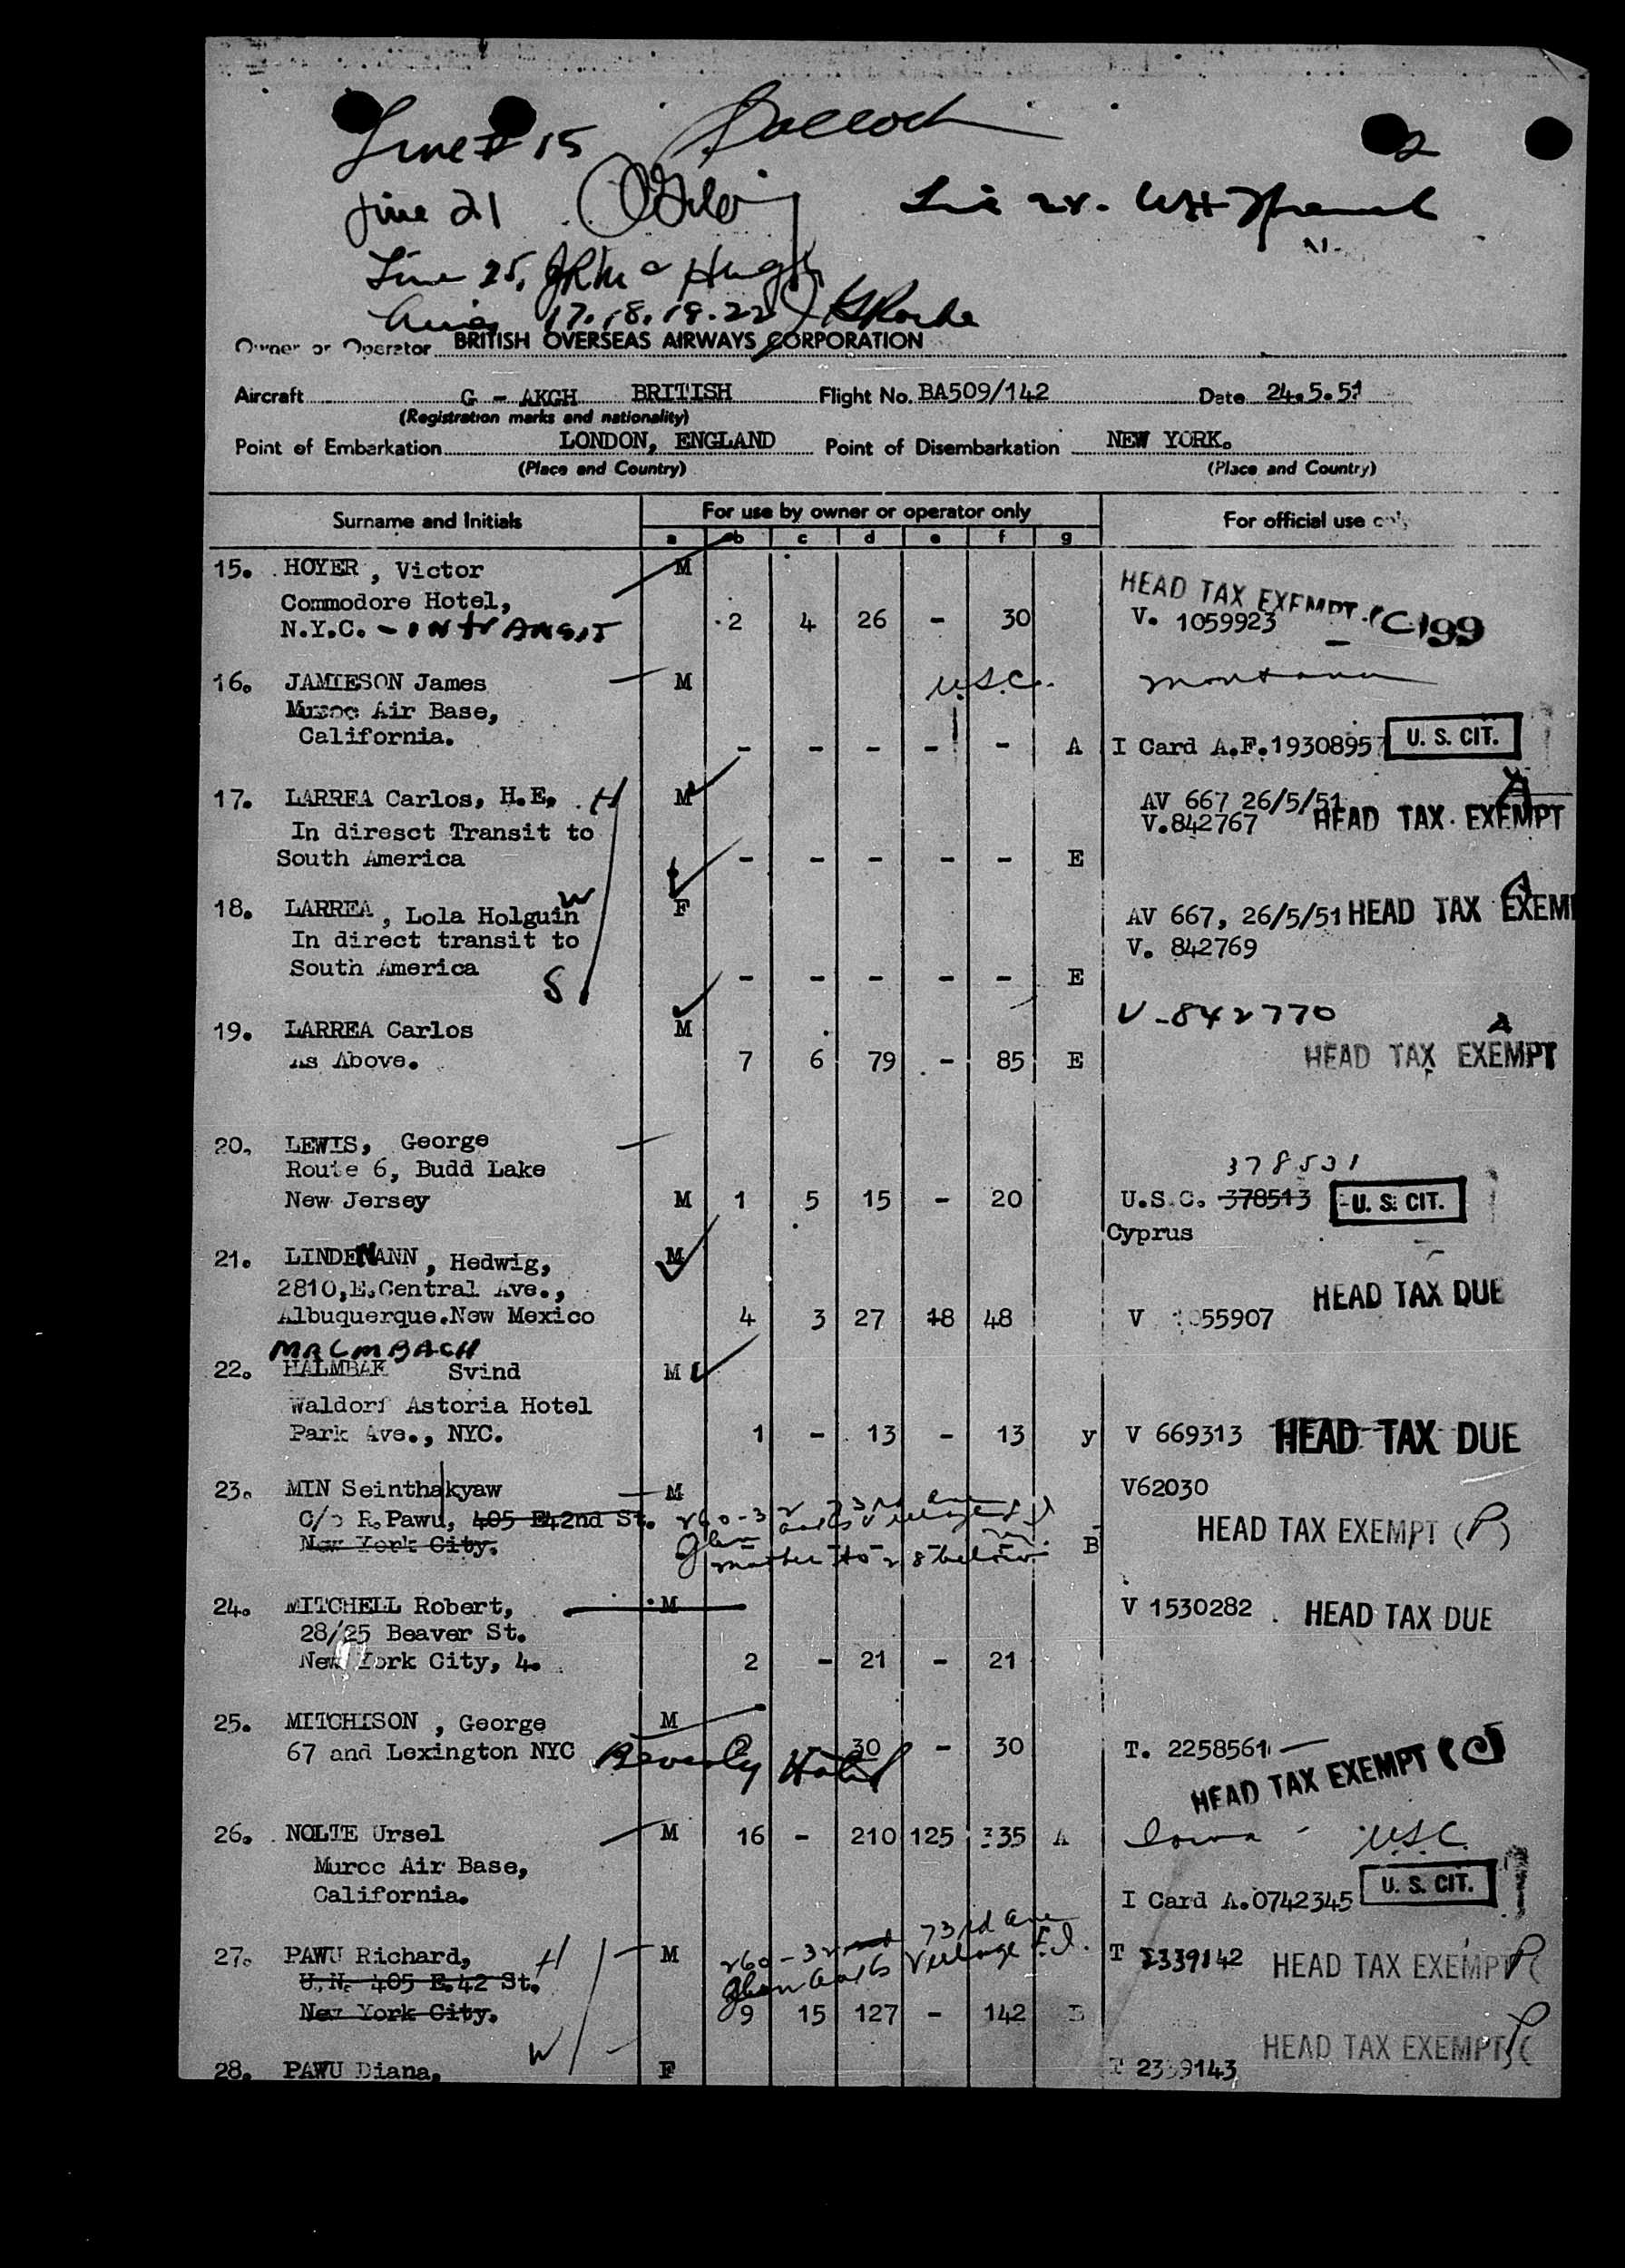 2
Line # 15
Line 21
Line 25, JR Mc Hugh
17. 18. 19. 22
Owner or Operator BRITISH OVERSEAS AIRWAYS CORPORATION
Aircraft G - AKGH BRITISH Flight No. BA509/142 Date 24.5.51
(Registration marks and nationality)
Point of Embarkation LONDON, ENGLAND Point of Disembarkation NEW YORK.
(Place and Country) (Place and Country)
Surname and Initials For use by owner or operator only For official use only
a b c d e f g
15. HOYER, Victor M HEAD TAX EXEMPT (C) 199
Commodore Hotel,
N.Y.C. - IN TRANSIT 2 4 26 - 30 V. 1059923
16. JAMIESON James M U.S.C. Montana
Muroc Air Base,
California. - - - - - A I Card A.F.1930895 U. S. CIT.
17. LARREA Carlos, H.E. H M AV 667 26/5/51
In diresct Transit to V.842767 HEAD TAX EXEMPT
South America - - - - - E
18. LARREA, Lola Holguin W F AV 667, 26/5/51 HEAD TAX EXEM
In direct transit to V. 842769
South America S - - - - - E
19. LARREA Carlos M V-842770
As Above. 7 6 79 - 85 E HEAD TAX EXEMPT
20. LEWIS, George
Route 6, Budd Lake 378531
New Jersey M 1 5 15 - 20 U.S.C. 378513 U. S. CIT.
Cyprus
21. LINDEMANN, Hedwig, M
2810,E.Central Ave., HEAD TAX DUE
Albuquerque.New Mexico 4 3 27 18 48 V 055907
MALMBACH
22. HALMBAK Svind M
Waldorf Astoria Hotel
Park Ave., NYC. 1 - 13 - 13 y V 669313 HEAD TAX DUE
23. MIN Seinthakyaw M V62030
C/o R.Pawu, 405 E42nd St. 260-32 73rd Ave HEAD TAX EXEMPT (P)
New York City. Glen Oaks Village
mother to 28 below B
24. MITCHELL Robert, M V 1530282 HEAD TAX DUE
28/25 Beaver St.
New York City, 4. 2 - 21 - 21
25. MITCHISON, George M
67 and Lexington NYC Beverly Hotel 30 - 30 T. 2258561
HEAD TAX EXEMPT (C)
26. NOLTE Ursel M 16 - 210 125 335 A Iowa - U.S.C.
Muroc Air Base,
California. I Card A.0742345 U. S. CIT.
27. PAWU Richard, H M 260-32 73rd Ave T 2339142 HEAD TAX EXEMPT P
U.N. 405 E.42 St. Glen Oaks Village
New York City. 9 15 127 - 142 B
W HEAD TAX EXEMPT
28. PAWU Diana, F T 2339143